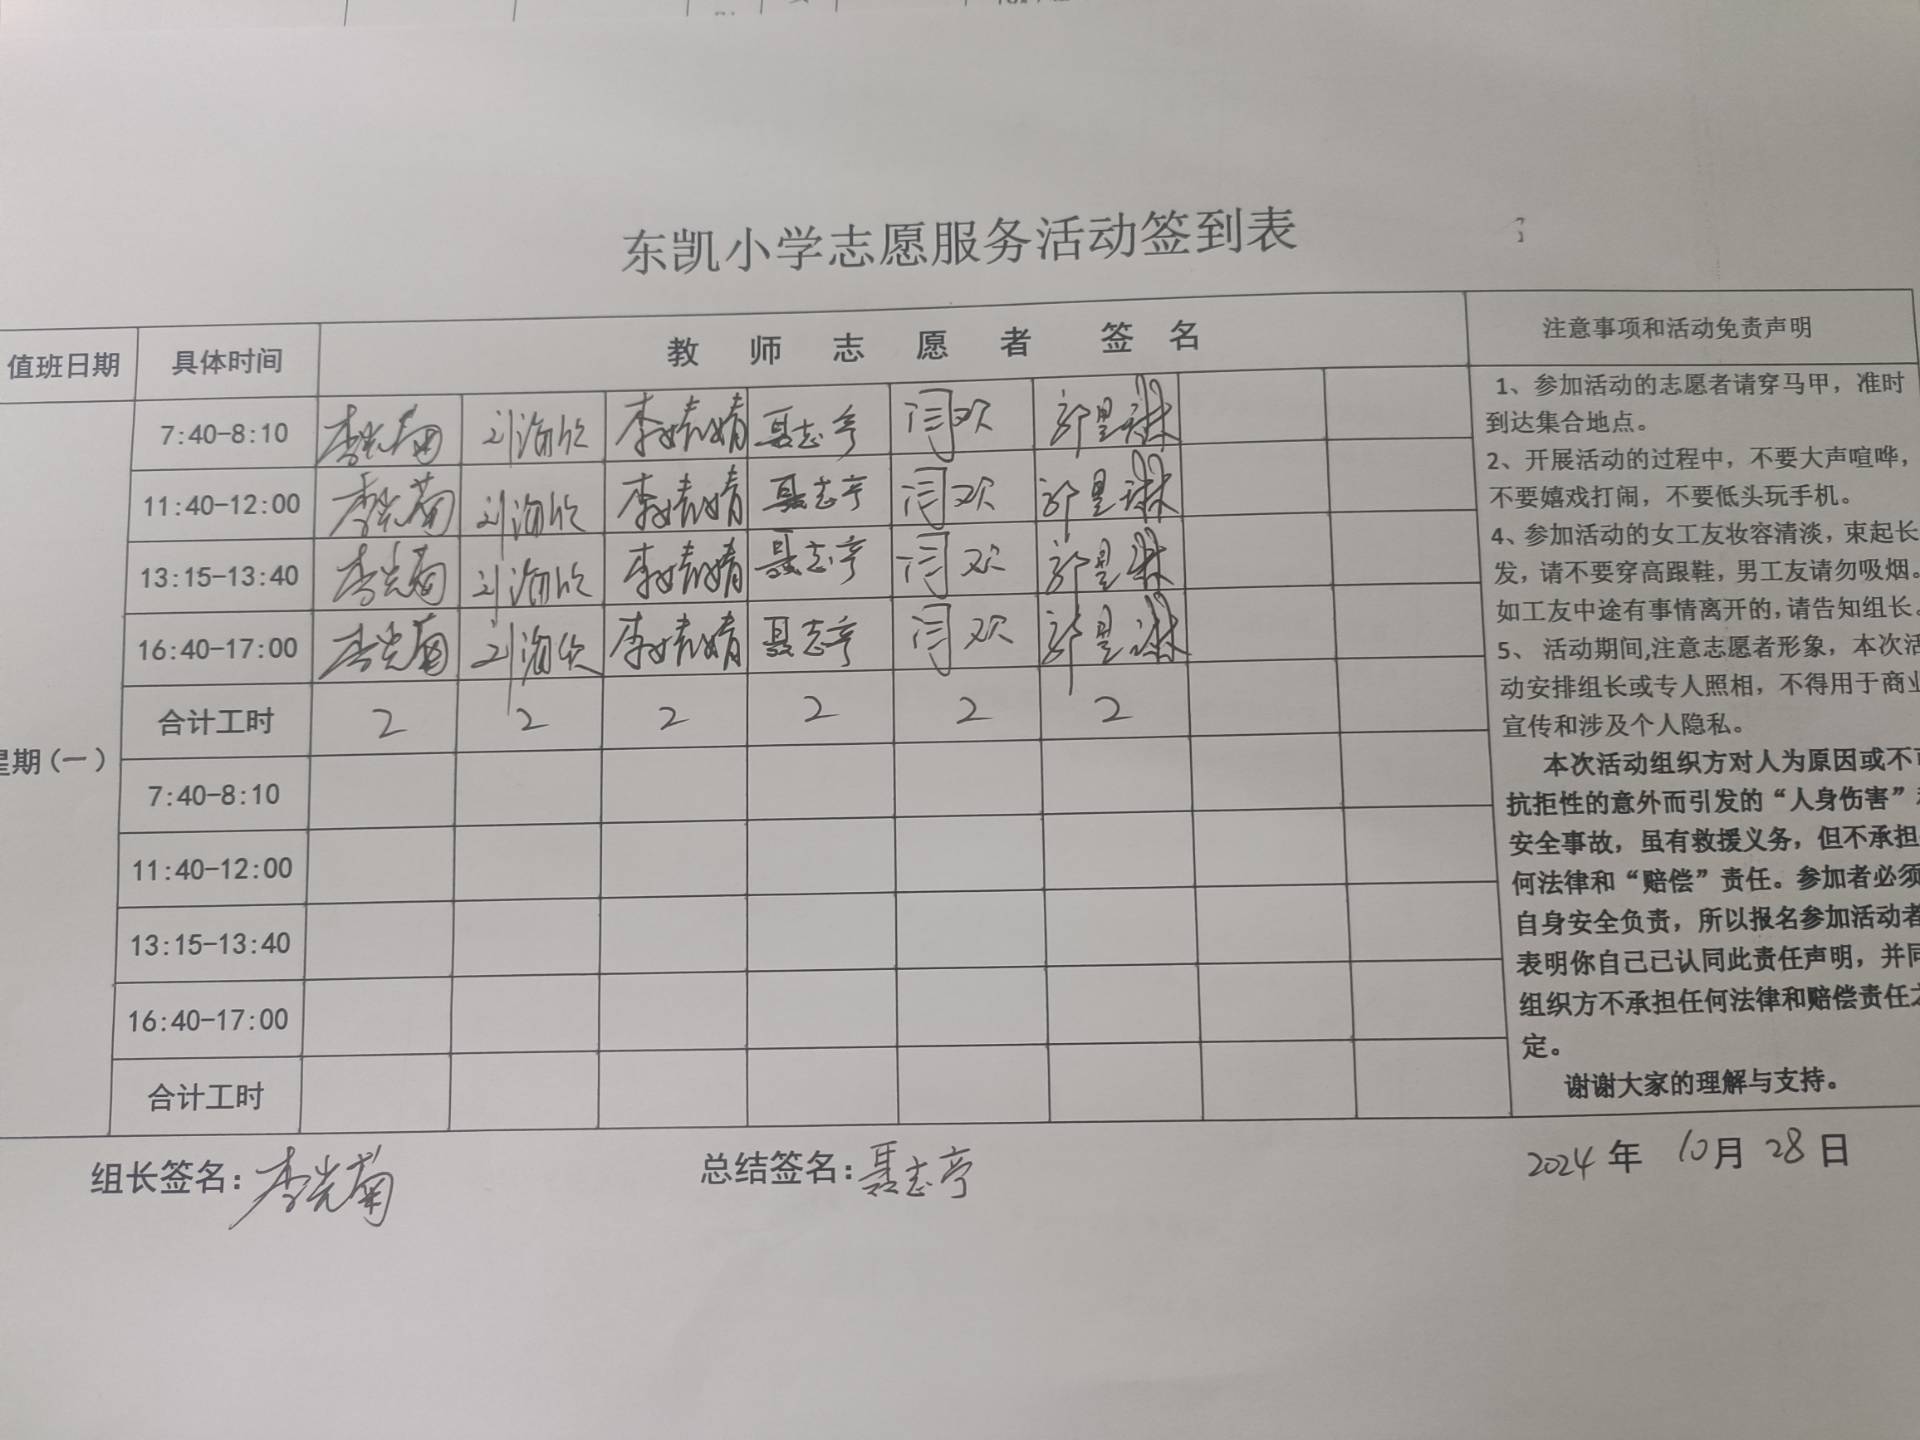 东凯小学志愿服务活动签到表
值班日期 具体时间 教 师 志 愿 者 签 名 注意事项和活动免责声明
7:40-8:10 李光菊 刘 李婧婧 聂志亭 闫欢
11:40-12:00 李光菊 刘 李婧婧 聂志亭 闫欢
13:15-13:40 李光菊 刘 李婧婧 聂志亭 闫欢
16:40-17:00 李光菊 刘 李婧婧 聂志亭 闫欢
合计工时 2 2 2 2 2 2
期(一)
7:40-8:10
11:40-12:00
13:15-13:40
16:40-17:00
合计工时
1、参加活动的志愿者请穿马甲，准时
到达集合地点。
2、开展活动的过程中，不要大声喧哗，
不要嬉戏打闹，不要低头玩手机。
4、参加活动的女工友妆容清淡，束起长
发，请不要穿高跟鞋，男工友请勿吸烟。
如工友中途有事情离开的，请告知组长。
5、 活动期间,注意志愿者形象，本次活
动安排组长或专人照相，不得用于商业
宣传和涉及个人隐私。
本次活动组织方对人为原因或不可
抗拒性的意外而引发的“人身伤害”
安全事故，虽有救援义务，但不承担
何法律和“赔偿”责任。参加者必须
自身安全负责，所以报名参加活动者
表明你自己已认同此责任声明，并同
组织方不承担任何法律和赔偿责任之
定。
谢谢大家的理解与支持。
组长签名：李光菊 总结签名：聂志亭 2024 年 10月 28 日